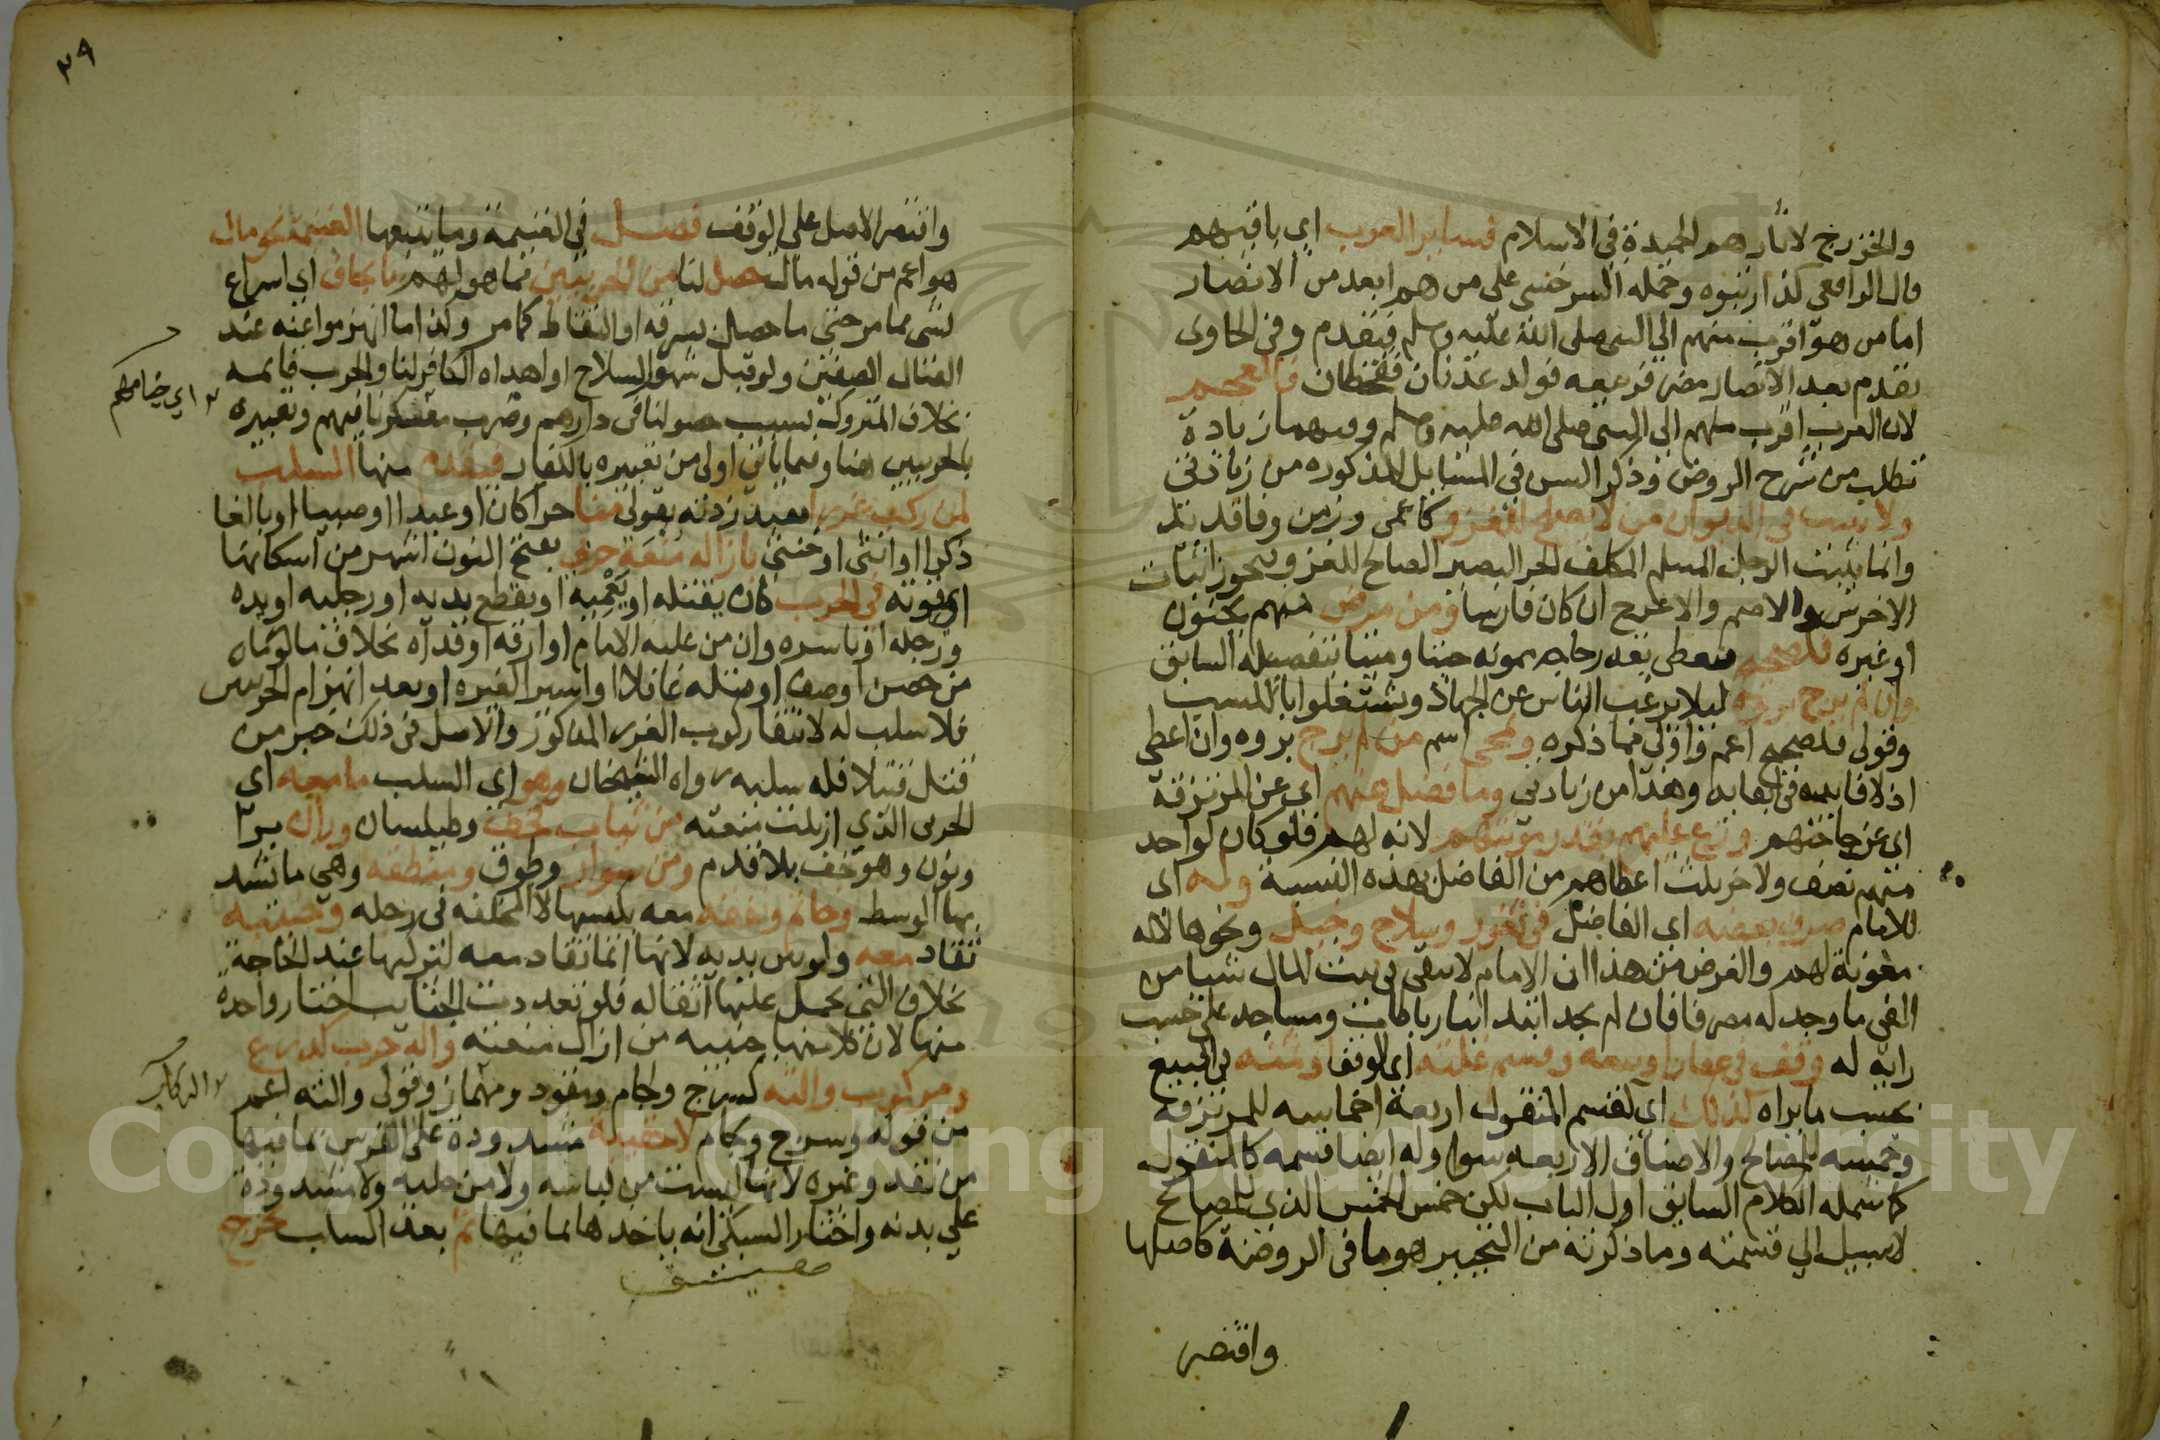 والخزرج لاثارهم الحميدة في الاسلام فساير العرب اي باقيهم
قال الرافعي كذا رتبوه وحمله السرخسي على من هم ابعد من الانصار
اما من هو اقرب منهم الي النبي صلى الله عليه وسلم فيقدم وفي الحاوى
يقدم بعد الانصار مضر فربيعه فولد عدنان فقحطان فالعجم
لان العرب اقرب منهم الي النبي صلى الله عليه وسلم وفيهما زيادة
تطلب من شرح الروض وذكر السن في المسايل المذكوره من زيادتي
ولا يثبت في الديوان من لا يصلح لغزو كاعمى وزمن وفاقد يد
وانما يثبت الرجل المسلم المكلف الحر البصير الصالح للغزو ويجوز اثبات
الاخرس والاصم والاعرج ان كان فارسا ومن مرض منهم بجنون
او غيره فكصحيح فيعطى بقدر حاجه ممونه حيا وميتا بتفصيله السابق
وان لم يرج بروه ليلا يرغب الناس عن الجهاد ويشتغلوا بالكسب
وقولي فكصحيح اعم واولى مما ذكره ويمحى اسم من لم يرج بروه وان اعطي
اذ لا فايدة في ابقايه وهذا من زيادتي وما فضل عنهم اي عن المرتزقة
اي عن حاجتهم وزع عليهم بقدر مونتهم لانه لهم فلو كان لواحد
منهم نصف ولاخر ثلث اعطاهم من الفاضل بهذه النسبة وله اى
للامام صرف بعضه اي الفاضل في ثغور وسلاح وخيل ونحوها لانه
معونة لهم والغرض من هذا ان الامام لا يبقي في بيت المال شيا من
الفي ما وجد له مصرفا فان لم يجد ابتدا بنا رباطات ومساجد على حسب
رايه له وقف في عقار او بيعه وقسم غلته اي الوقف او ثمنه في البيع
بحسب ما يراه كذلك اي كقسم المنقول اربعة اخماسه للمرتزقه
وخمسه للمصالح والاصناف الاربعه سوا وله ايضا قسمه كالمنقول
كما شمله الكلام السابق اول الباب لكن خمس الخمس الذي للمصالح
لا سبيل الي قسمته وما ذكرته من التخيير هو ما في الروضة كاصلها
واقتصر
٣٩
واقتصر الاصل علي الوقف فصل في الغنيمة وما يتبعها الغنيمة نحو مال
هو اعم من قوله مال حصل لنا من الحربيين مما هو لهم بايجاف اي اسراع
لشى مما مر حتى ما حصل بسرقه او التقاط كما مر وكذا ما انهزموا عنه عند
القتال الصفين ولو قبل شهر السلاح او اهداه الكافر لنا والحرب قايمه
بخلاف المتروك بسبب حصولنا في دارهم وضرب معسكرنا فيهم وتعبيره
اي خيامهم
بالحربيين هنا وفيما ياتي اولى من تعبيره بالكفار فيقدم منها السلب
لمن ركب غررا بقيد زدته بقولى منا حرا كان او عبدا او صبيا او بالغا
ذكرا او انثى او خنثى بازاله منعة حربي بفتح النون اشهر من اسكانها
اي قوته في الحرب كان يقتله او يعميه او يقطع يديه او رجليه او يده
ورجله او ياسره وان من عليه الامام او ارقه او فداه بخلاف ما لو رماه
من حصن او صف او قتله غافلا او اسيرا لغيره او بعد انهزام الحربيين
فلا سلب له لانتفا ركوب الغرر المذكور والاصل في ذلك خبر من
قتل قتيلا فله سلبه رواه الشيخان وهو اي السلب ما معه اي
الحربى الذي ازيلت منعته من ثياب كخف وطيلسان وران برا
ونون وهو خف بلا قدم ومن سوار وطوق ومنطقه وهي ما يشد
بها الوسط وخاتم ونفقه معه بكيسها لا المخلفه في رحله وجنيبه
تقاد معه ولو بين يديه لانها انما تقاد معه ليركبها عند الحاجة
بخلاف التي يحمل عليها اثقاله فلو تعددت الجنايب اختار واحدة
منها لان كلا منها جنيبه من ازال منعته واله حرب كدرع
ومركوب والته كسرج ولجام ومقود ومهماز وقولي والته اعم
الركاب
من قوله وسرج ولجام لا حقيبة مشدودة على الفرس بما فيها
من نقد وغيره لانها ليست من لباسه ولا من حليه ولا مشدودة
علي بدنه واختار السبكى انه ياخذها بما فيها ثم بعد السلب تخرج